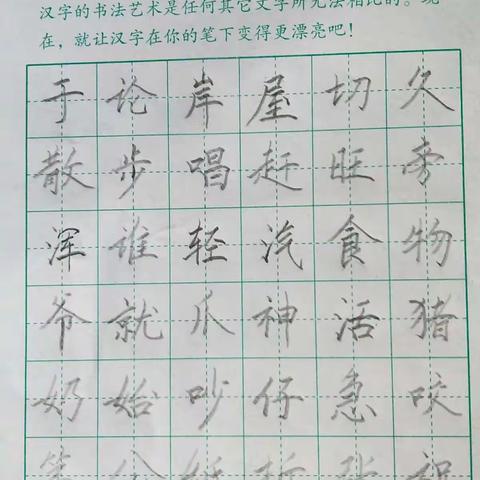 汉字的书法艺术是任何其它文字所无法相比的。现
在，就让汉字在你的笔下变得更漂亮吧！
于论岸屋切久
散步唱赶旺旁
浑谁轻汽食物
爷就爪神活猪
奶始吵仔急咬